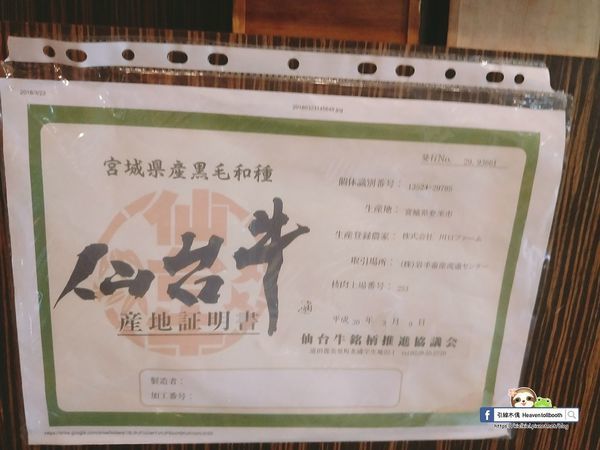 2018/3/23
宮城県産黒毛和種
仙台牛
産地証明書
発行No. 29.93661
個体識別番号： 13524-29785
生産地： 宮城県登米市
生産登録農家： 株式会社 川口ファーム
取引場所： (株)岩手畜産流通センター
枝肉上場番号： 253
平成 30 年 3 月 9 日
仙台牛銘柄推進協議会
製造者：
加工番号：
引線不低 Heaventollbooth